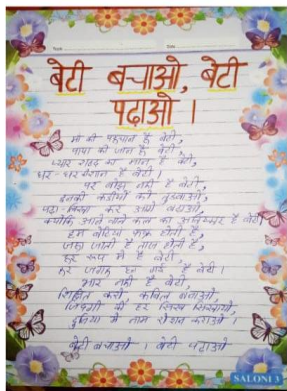 बेटी बचाओ, बेटी
पढ़ाओ ।
माँ की पहचान है बेटी,
पापा की जान है बेटी,
घर की शान है बेटी ।
पर बोझ नहीं है बेटी,
इनकी कड़ीयों को तुड़वाओ,
पढ़ा-लिखा कर आगे बढ़ाओ,
क्योंकि आने वाले कल का है बेटी
हम बेटियां होती है,
जहां जाती है होती है,
हर रूप में है बेटी,
हर जगह है बेटी ।
भार नहीं है बेटी,
शिक्षित करो, काबिल बनाओ,
जिंदगी की हर सिखाओ,
दुनिया में नाम रोशन कराओ ।
बेटी बचाओ । बेटी पढ़ाओ
SALONI 3